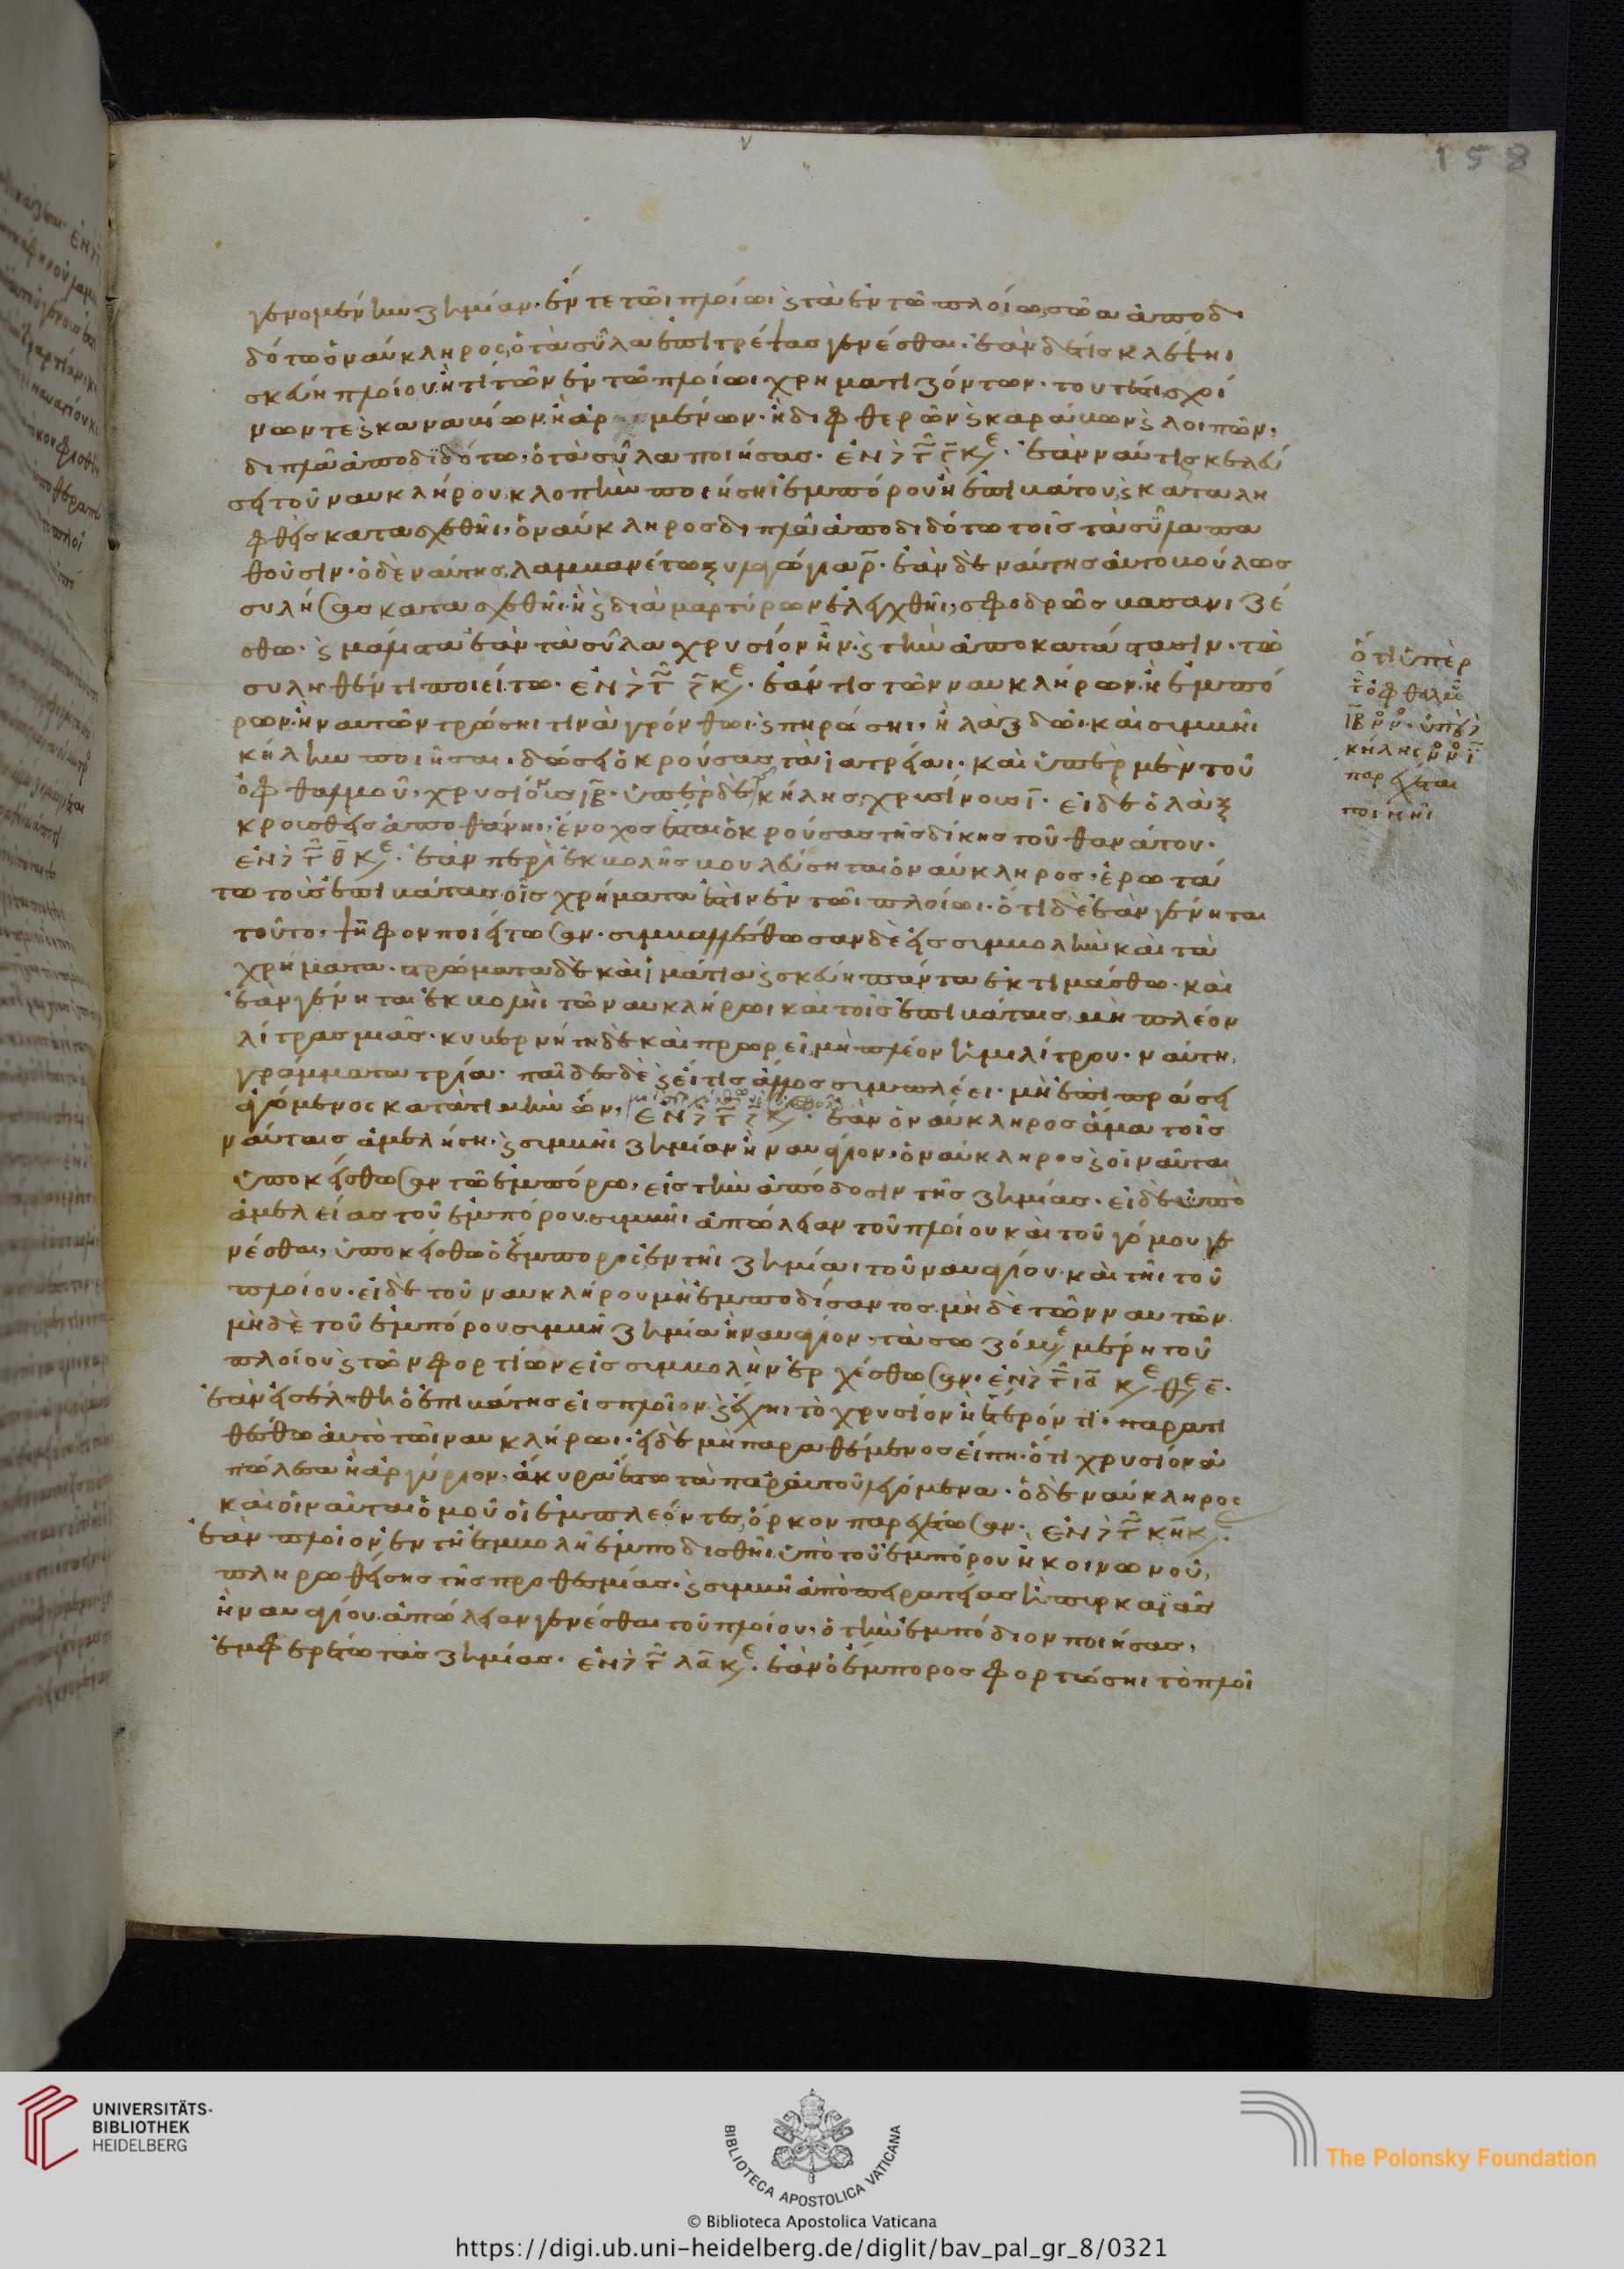 158
γενομένην ζημίαν. ἔν τε τῶι πλοίωι ϛ τὰ ἐν τῶ πλοίω, σῶα ἀποδι
δότω ὁ ναύκληρος, ὁ τὰ σῦλα ἐπιτρέψας γενέσθαι. ἐὰν δέ τις κλέψηι
σκεύη πλοίου. ἤ τι τῶν ἐν τῶ πλοίωι χρηματιζόντων. τουτέστι σχοί
νων τὲ ϛ καναβίων. ἢ ἀρ μένων. ἢ διφθερῶν ϛ καράβων ϛ λοιπῶν,
διπλᾶ ἀποδιδότω, ὁ τὰ σῦλα ποιήσας. ἐν τ κε. ἐὰν ναύτης κελεύ
σει τοῦ ναυκλήρου κλοπὴν ποιήσηι ἐμπόρου ἢ ἐπιβάτου, ϛ καταλη
φθεὶς κατασχεθῆι, ὁ ναύκληρος διπλᾶ ἀποδιδότω τοῖς τὰ σῦλα πα
θοῦσιν. ὁ δὲ ναύτης λαμβανέτω ξυλόγια ρ. ἐὰν δὲ ναύτης αὐτοβούλως
συλήσας κατασχεθῆι. ἢ ϛ διὰ μαρτύρων ἐλεγχθῆι, σφοδρῶς βασανιζέ
σθω. ϛ μάλιστα ἐὰν τὰ σῦλα χρυσίον ἦν. ϛ τὴν ἀποκατάστασιν. τῶ
συληθέντι ποιείτω. ἐν τ κε. ἐάν τις τῶν ναυκλήρων. ἢ ἐμπό
ρων. ἢ ναυτῶν τρώσηι τινὰ γρόνθωι. ϛ πηρώσηι. ἢ λὰξ δῶι. καὶ συμβῆι
κήλην ποιῆσαι. δώσει ὁ κρούσας τὰ ἰατρεῖα. καὶ ὑπὲρ μὲν τοῦ
ὀφθαλμοῦ, χρυσίους ιβ. ὑπὲρ δὲ κήλης, χρυσίνους ι. εἰ δὲ ὁ λὰξ
κρουσθεὶς ἀποθάνηι, ἔνοχος ἔσται ὁ κρούσας τῆς δίκης τοῦ θανάτου.
ἐν τ θ κε. ἐὰν περὶ ἐκβολῆς βουλεύσηται ὁ ναύκληρος, ἐρωτά
τω τοὺς ἐπιβάτας οἷς χρήματα ἐστὶν ἐν τῶι πλοίωι. ὅτι δὲ ἐὰν γένηται
τοῦτο, ψῆφον ποιείτωσαν. συμβαλλέσθωσαν δὲ εἰς συμβολὴν καὶ τὰ
χρήματα. στρώματα δὲ καὶ ἱμάτια ϛ σκεύη πάντα ἐκτιμάσθω. καὶ
ἐὰν γένηται ἐκβολὴ τῶ ναυκλήρωι καὶ τοῖς ἐπιβάταις, μὴ πλέον
λίτρας μιᾶς. κυβερνήτη δὲ καὶ πρωρεῖ, μὴ πλέον ἡμιλίτρου. ναύτη,
γράμματα τρία. παῖδες δὲ ϛ εἴ τις ἄλλος συμπλέει. μὴ ἐπὶ πράσει
ἀγόμενος κατὰ τιμὴν ὤν, ἐν τ κε. ἐὰν ὁ ναύκληρος ἅμα τοῖς
ναύταις ἀμελήση. ϛ συμβῆι ζημίαν ἢ ναυάγιον. ὁ ναύκληρος ϛ οἱ ναῦται
ὑποκείσθωσαν τῶ ἐμπόρω, εἰς τὴν ἀπόδοσιν τῆς ζημίας. εἰ δὲ ὑπὸ
ἀμελείας τοῦ ἐμπόρου συμβῆι ἀπώλειαν τοῦ πλοίου καὶ τοῦ γόμου γε
νέσθαι, ὑποκείσθω ὁ ἔμπορος ἐν τῆι ζημίαι τοῦ ναυαγίου. καὶ τῆι τοῦ
πλοίου. εἰ δὲ τοῦ ναυκλήρου μὴ ἐμποδίσαντος. μὴ δὲ τῶν ναυτῶν.
μὴ δὲ τοῦ ἐμπόρου συμβῆ ζημία ἢ ναυάγιον. τὰ σωζόμ μέρη τοῦ
πλοίου ϛ τῶν φορτίων εἰς συμβολὴν ἐρχέσθωσαν. ἐν τ ια κε θε ε.
ἐὰν εἰσέλθη ὁ ἐπιβάτης εἰς πλοῖον. ϛ ἔχηι τὸ χρυσίον ἢ ἕτερόν τι. παρατι
θέσθω αὐτὸ τῶι ναυκλήρωι. εἰ δὲ μὴ παραθέμενος εἴπη. ὅτι χρυσίον ἀ
πώλεσα ἢ ἀργύριον, ἄκυρα ἔστω τὰ παρ' αὐτοῦ λεγόμενα. ὁ δὲ ναύκληρος
καὶ οἱ ναῦται ὁμοῦ οἱ ἐμπλέοντες, ὅρκον παρεχέτωσαν. ἐν τ κη κε.
ἐὰν πλοῖον ἐν τῆ ἐμβολῆ ἐμποδισθῆι ὑπὸ τοῦ ἐμπόρου ἢ κοινωνοῦ,
πληρωθείσης τῆς προθεσμίας. ϛ συμβῆ ἀπὸ πειρατείας ἢ πυρκαϊᾶς
ἢ ναυαγίου. ἀπώλειαν γενέσθαι τοῦ πλοίου, ὁ τὴν ἐμπόδιον ποιήσας,
ἐμφερέτω τὰς ζημίας. ἐν τ λα κε. ἐὰν ὁ ἔμπορος φορτώσηι τὸ πλοῖ
ὅτι ὑπὲρ
ὀφθαλμ
ιβ νν. ὑπὲρ
κήλης νν ι
παρέχεται
ποινὴ
UNIVERSITÄTS-
BIBLIOTHEK
HEIDELBERG
BIBLIOTECA APOSTOLICA VATICANA
The Polonsky Foundation
© Biblioteca Apostolica Vaticana
https://digi.ub.uni-heidelberg.de/diglit/bav_pal_gr_8/0321